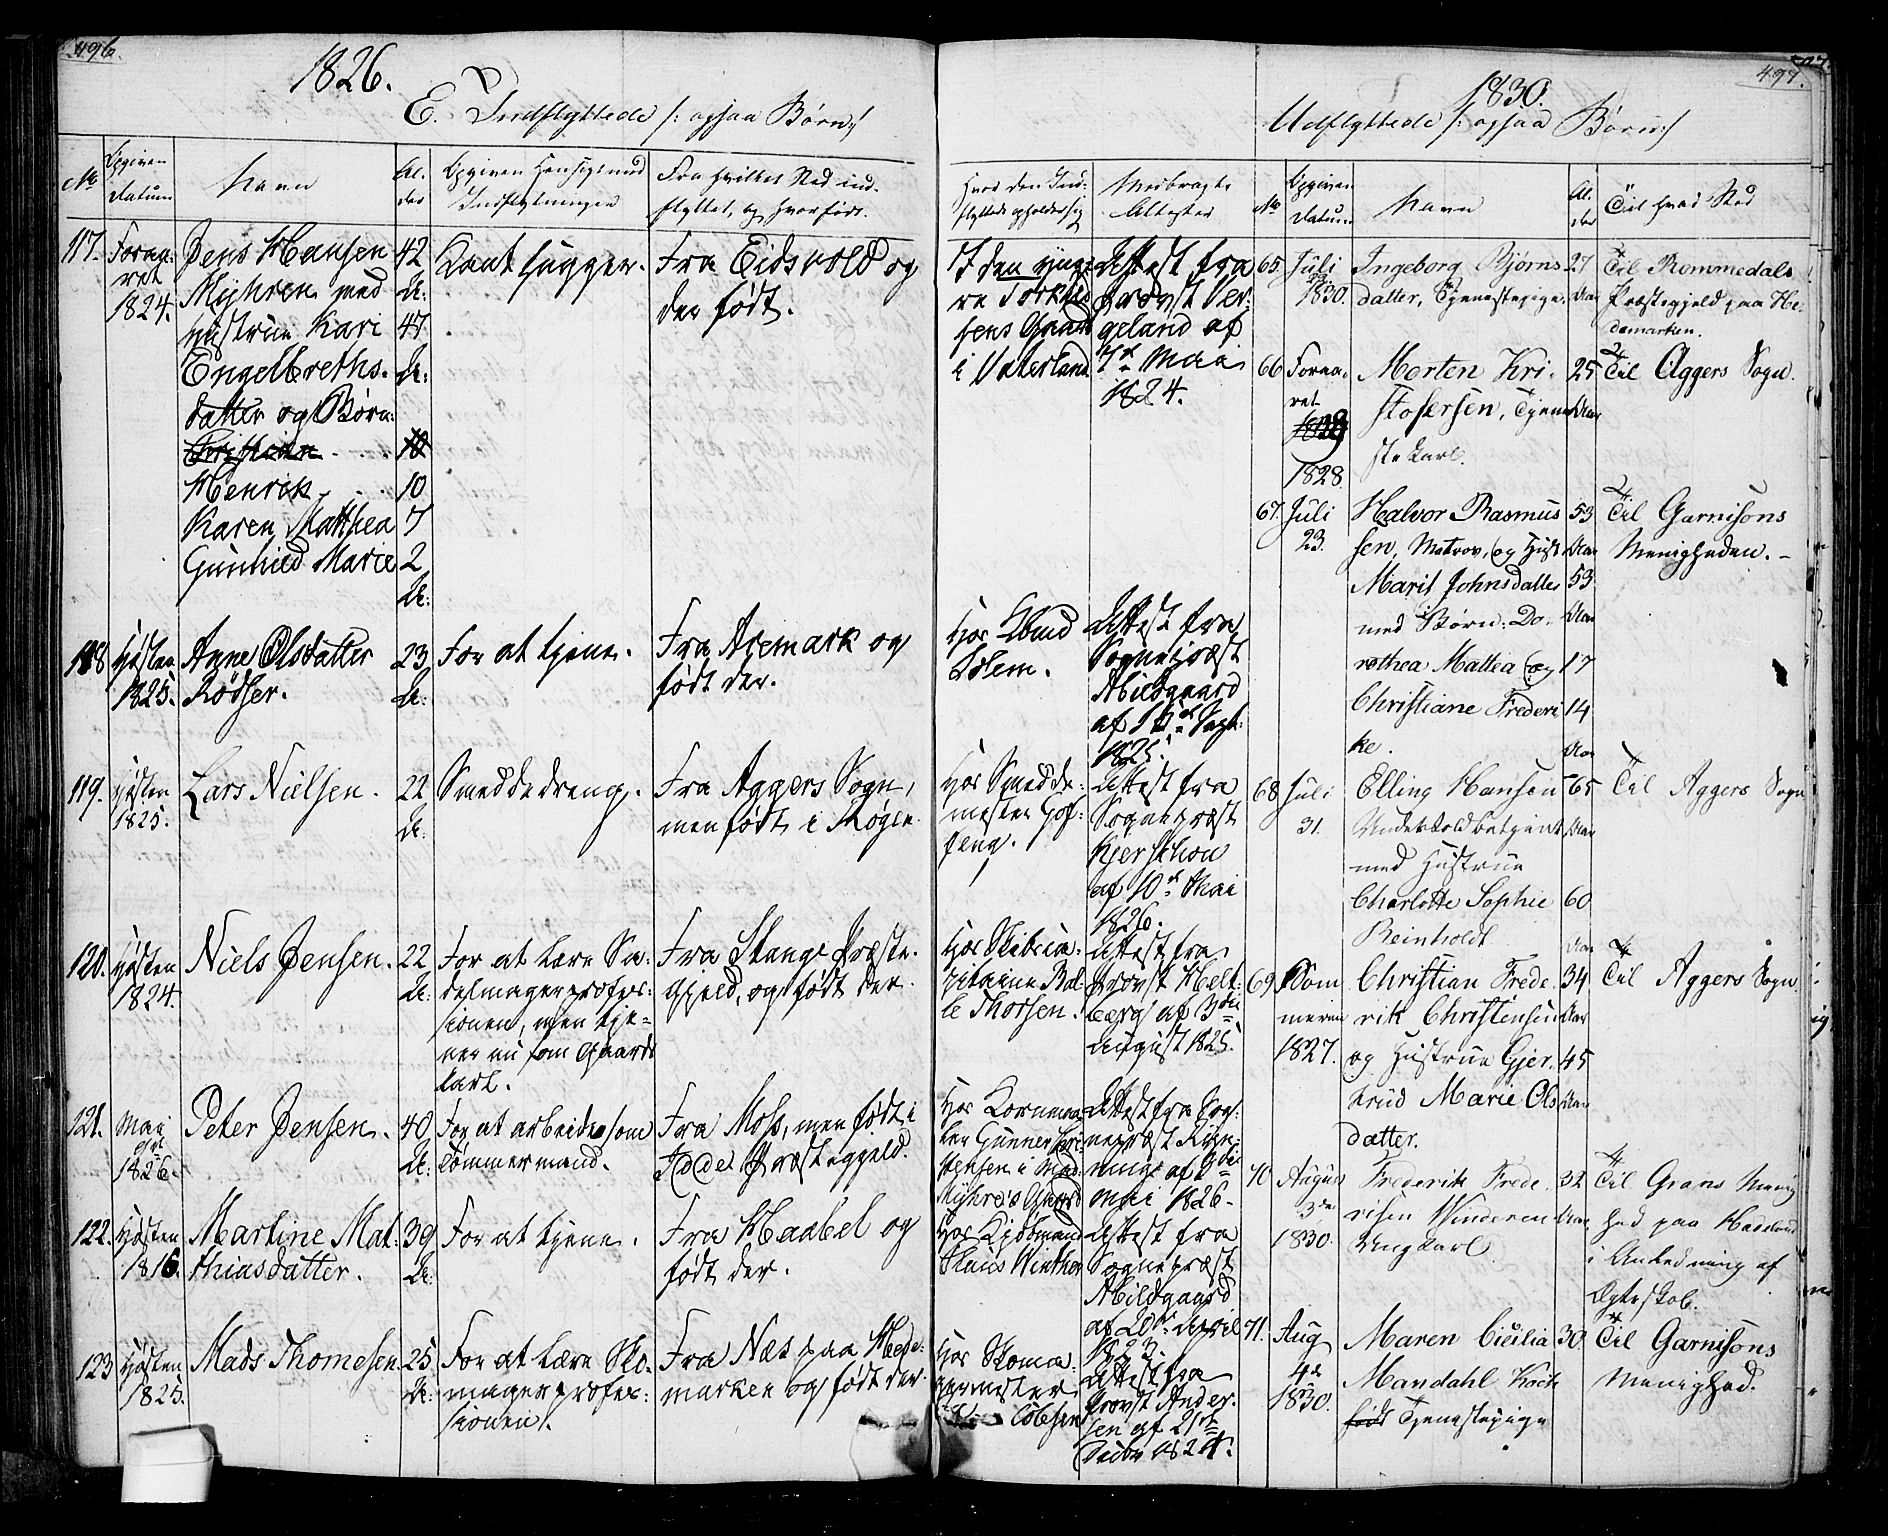 496.
1826.
E. Indflyttede /: ogsaa Børn :/
No
Opgiven Datum
Navn
Alder
Opgiven Hensigt med Indflytningen
Fra hvilket Sted indflyttet, og hvor født.
Hvor den Indflyttede opholder sig
Medbragte Attester
117.
Foraaret
1824.
Jens Hansen
Myhren med
Hustrue Kari
Engelbreths-
datter og Børn:
Christian
Henrik
Karen Matthea
Gunnild Marie
42
A:
47
A:
10
10
7
2
A:
Fra Eidsvold og
der født.
i Vaterland
Attest fra
Provst Wer-
geland af
7d Mai
1824.
118
Høsten
1825.
Anne Olsdatter
Rødser.
23
A:
For at tjene.
Fra Aremark og
født der.
Hos
Solem.
Attest fra
Sognepræst
Abildgaard
af
1825.
119.
Høsten
1825.
Lars Nielsen.
22
A:
Smeddedreng.
Fra Aggers Sogn,
men født i
Hos Smedde-
mester
Attest fra
Sognepræst
Kjerschou
af 10d Mai
1826.
120.
Høsten
1824.
Niels Jensen.
22
A:
For at lære Sa-
delmagerprofes-
sionen, men tje-
ner nu som Gaards
karl.
Fra Stange Præste-
gjeld, og født der.
Hos
Thorsen.
Attest fra
Provst Helt-
berg af 3die
August 1825.
121.
Mai
1826.
Peter Jensen.
40
A:
For at arbeide som
Tømmermand.
Fra Moss, men født i
Idde Præstegjeld.
Hos
Gunner
Attest fra Sog-
nepræst
af
Mai 1826.
122.
Høsten
1816.
Martine Mat-
thiasdatter.
39
A:
For at tjene.
Fra Haabel og
født der.
Hos Kjøbmand
Claus Winther
Attest fra
Sognepræst
Abildgaard
af 20de April
1823.
123
Høsten
1825.
Mads Thomesen
25
A:
For at lære Sko-
magerprofes-
sionen.
Fra Næs paa Hede-
marken og født der.
Hos Skoma-
germester
Attest fra
Provst Ander-
sen af 21de
1824.
497.
1830.
Udflyttede /: ogsaa Børn :/
No
Opgiven Datum
Navn
Alder
Til hvad Sted
65.
Juli
1830.
Ingeborg Bjørns
datter, Tjenestepige.
27
Aar
Til Rommedals
Præstegjeld paa He-
demarken.
66
Foraa-
ret
1828.
Morten Kri-
stofersen, Tjene-
stekarl.
25
Aar
Til Aggers Sogn.
67.
Juli
23.
Halvor Rasmus
sen, Matros, og Hust.
Marit Johnsdatter
med Børn: Do-
rothea Mattea og
Christiane Frederi
ke.
53
Aar
53
Aar
17
14
Aar
Til Garnisons
Menigheden.
68
Juli
31.
Elling Hansen
med Hustrue
Charlotte Sophie
Reinholdt.
65
Aar
60
Aar
Til Aggers Sogn
69
Som
meren
1827.
Christian Frede-
rik Christensen
og Hustrue Gjer-
trud Marie Ols
datter.
34
Aar
45
Aar
Til Aggers Sogn.
70
August
3die
1830.
Frederik Frede-
risen Winderen
Ungkarl
32
Aar
Til Grans Menig
hed paa Hadeland
i Anledning af
Ægteskab.
71.
Aug
4de
1830.
Maren Cicilia
Mandahl Koch
født Tjenestepige
30
Til Garnisons
Menighed.